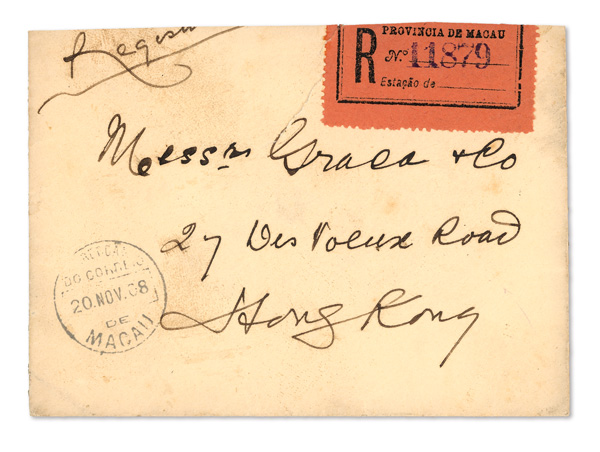 Regist
PROVINCIA DE MACAU
R
N.º 11879
Estação de
Messrs Graca & Co
27 Des Voeux Road
Hong Kong
DO CORREIO
20.NOV.08
DE
MACAU